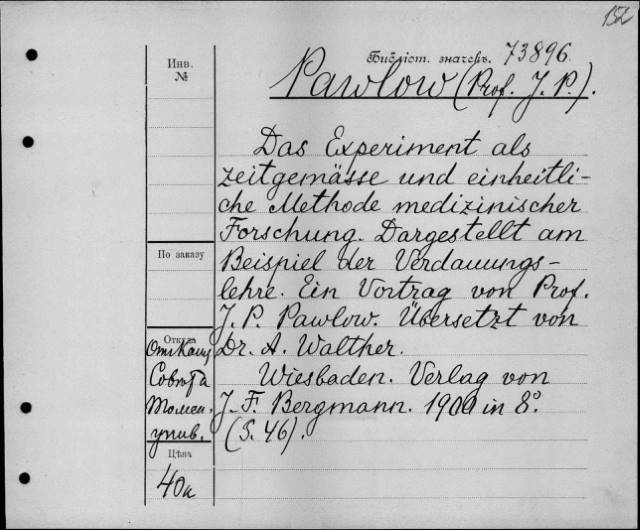 152
Библіот. значекъ. 73896
Инв.
№
Pawlow (Prof. J. P.).
Das Experiment als
zeitgemässe und einheitli-
che Methode medizinischer
Forschung. Dargestellt am
По заказу
Beispiel der Verdauungs-
lehre. Ein Vortrag von Prof.
J. P. Pawlow. Übersetzt von
Откуда
Dr. A. Walther.
Отъ Канц
Совѣта
Томск.
унив.
Wiesbaden. Verlag von
J. F. Bergmann. 1900 in 8°.
(S. 46).
Цѣна
40к